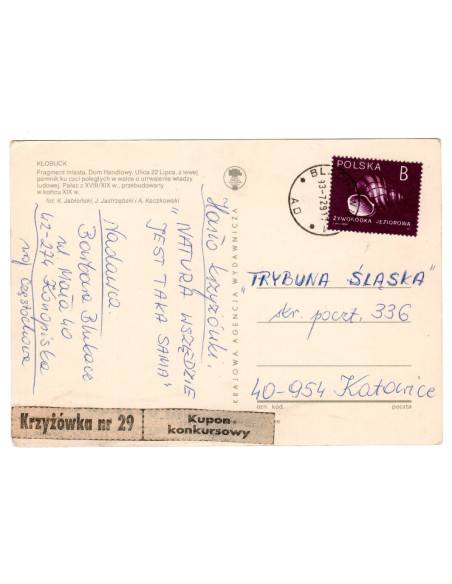 KŁOBUCK
Fragment miasta. Dom Handlowy. Ulica 22 Lipca, z lewej
pomnik ku czci poległych w walce o utrwalenie władzy
ludowej. Pałac z XVIII/XIX w., przebudowany
w końcu XIX w.
fot. K. Jabłoński, J. Jastrzębski i A. Kaczkowski
Hasło krzyżówki.
"NATURA WSZĘDZIE
JEST TAKA SAMA"
Nadawca
Barbara
ul. Mała 40
42-274 Konopiska
woj Częstochowa
KRAJOWA AGENCJA WYDAWNICZA
POLSKA
B
ŻYWORÓDKA JEZIOROWA
"TRYBUNA ŚLĄSKA"
skr. poczt. 336
40-954 Katowice
ozn. kod.
poczta
Krzyżówka nr 29
Kupon
konkursowy